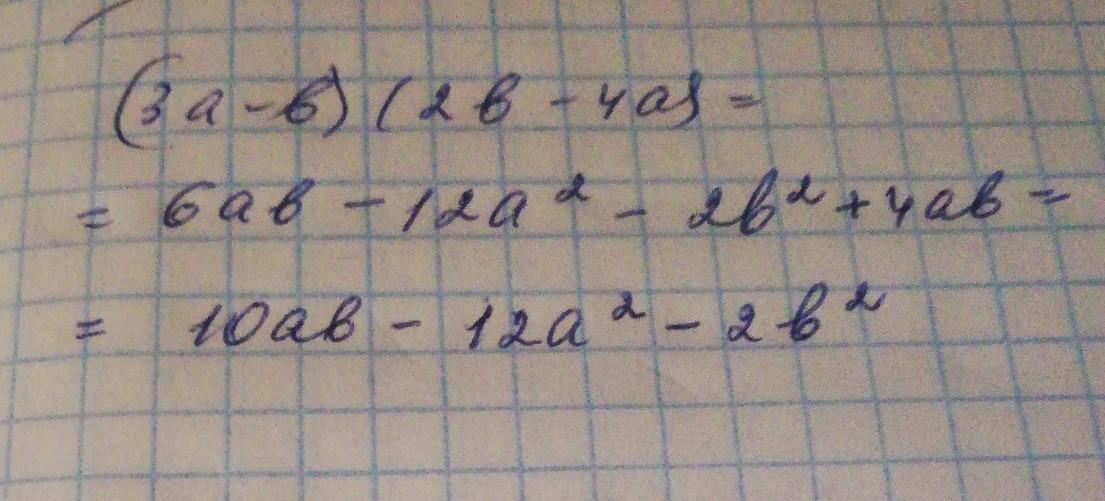 (3a-b)(2b-4a)=
= 6ab-12a²-2b²+4ab=
= 10ab-12a²-2b²